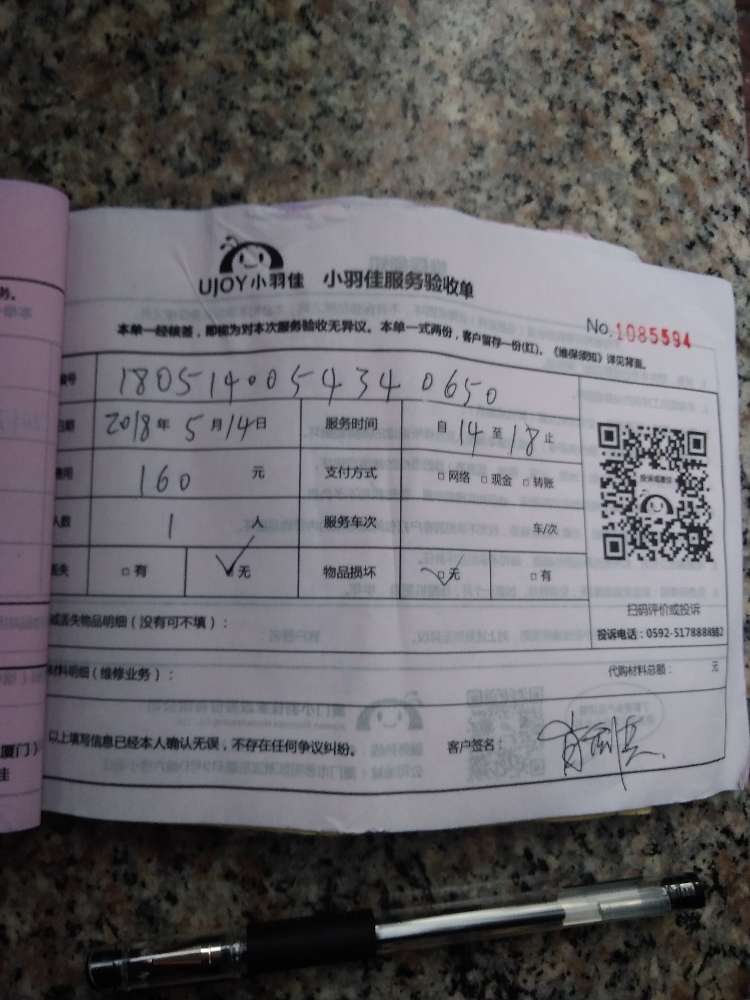 务。
UJOY小羽佳 小羽佳服务验收单
No.1085594
本单一经核签，即视为对本次服务验收无异议。本单一式两份，客户留存一份(红)。《维保须知》详见背面。
号 1805140054340650
日期 2018年5月14日 服务时间 自14至18止
用 160 元 支付方式 □网络 □现金 □转账
人数 1 人 服务车次 车/次
失 □有 □无 物品损坏 □无 □有
投诉或建议
扫码评价或投诉
投诉电话：0592-5178888
丢失物品明细（没有可不填）：
材料明细（维修业务）：
代购材料总额： 元
以上填写信息已经本人确认无误，不存在任何争议纠纷。
客户签名：
厦门）
佳